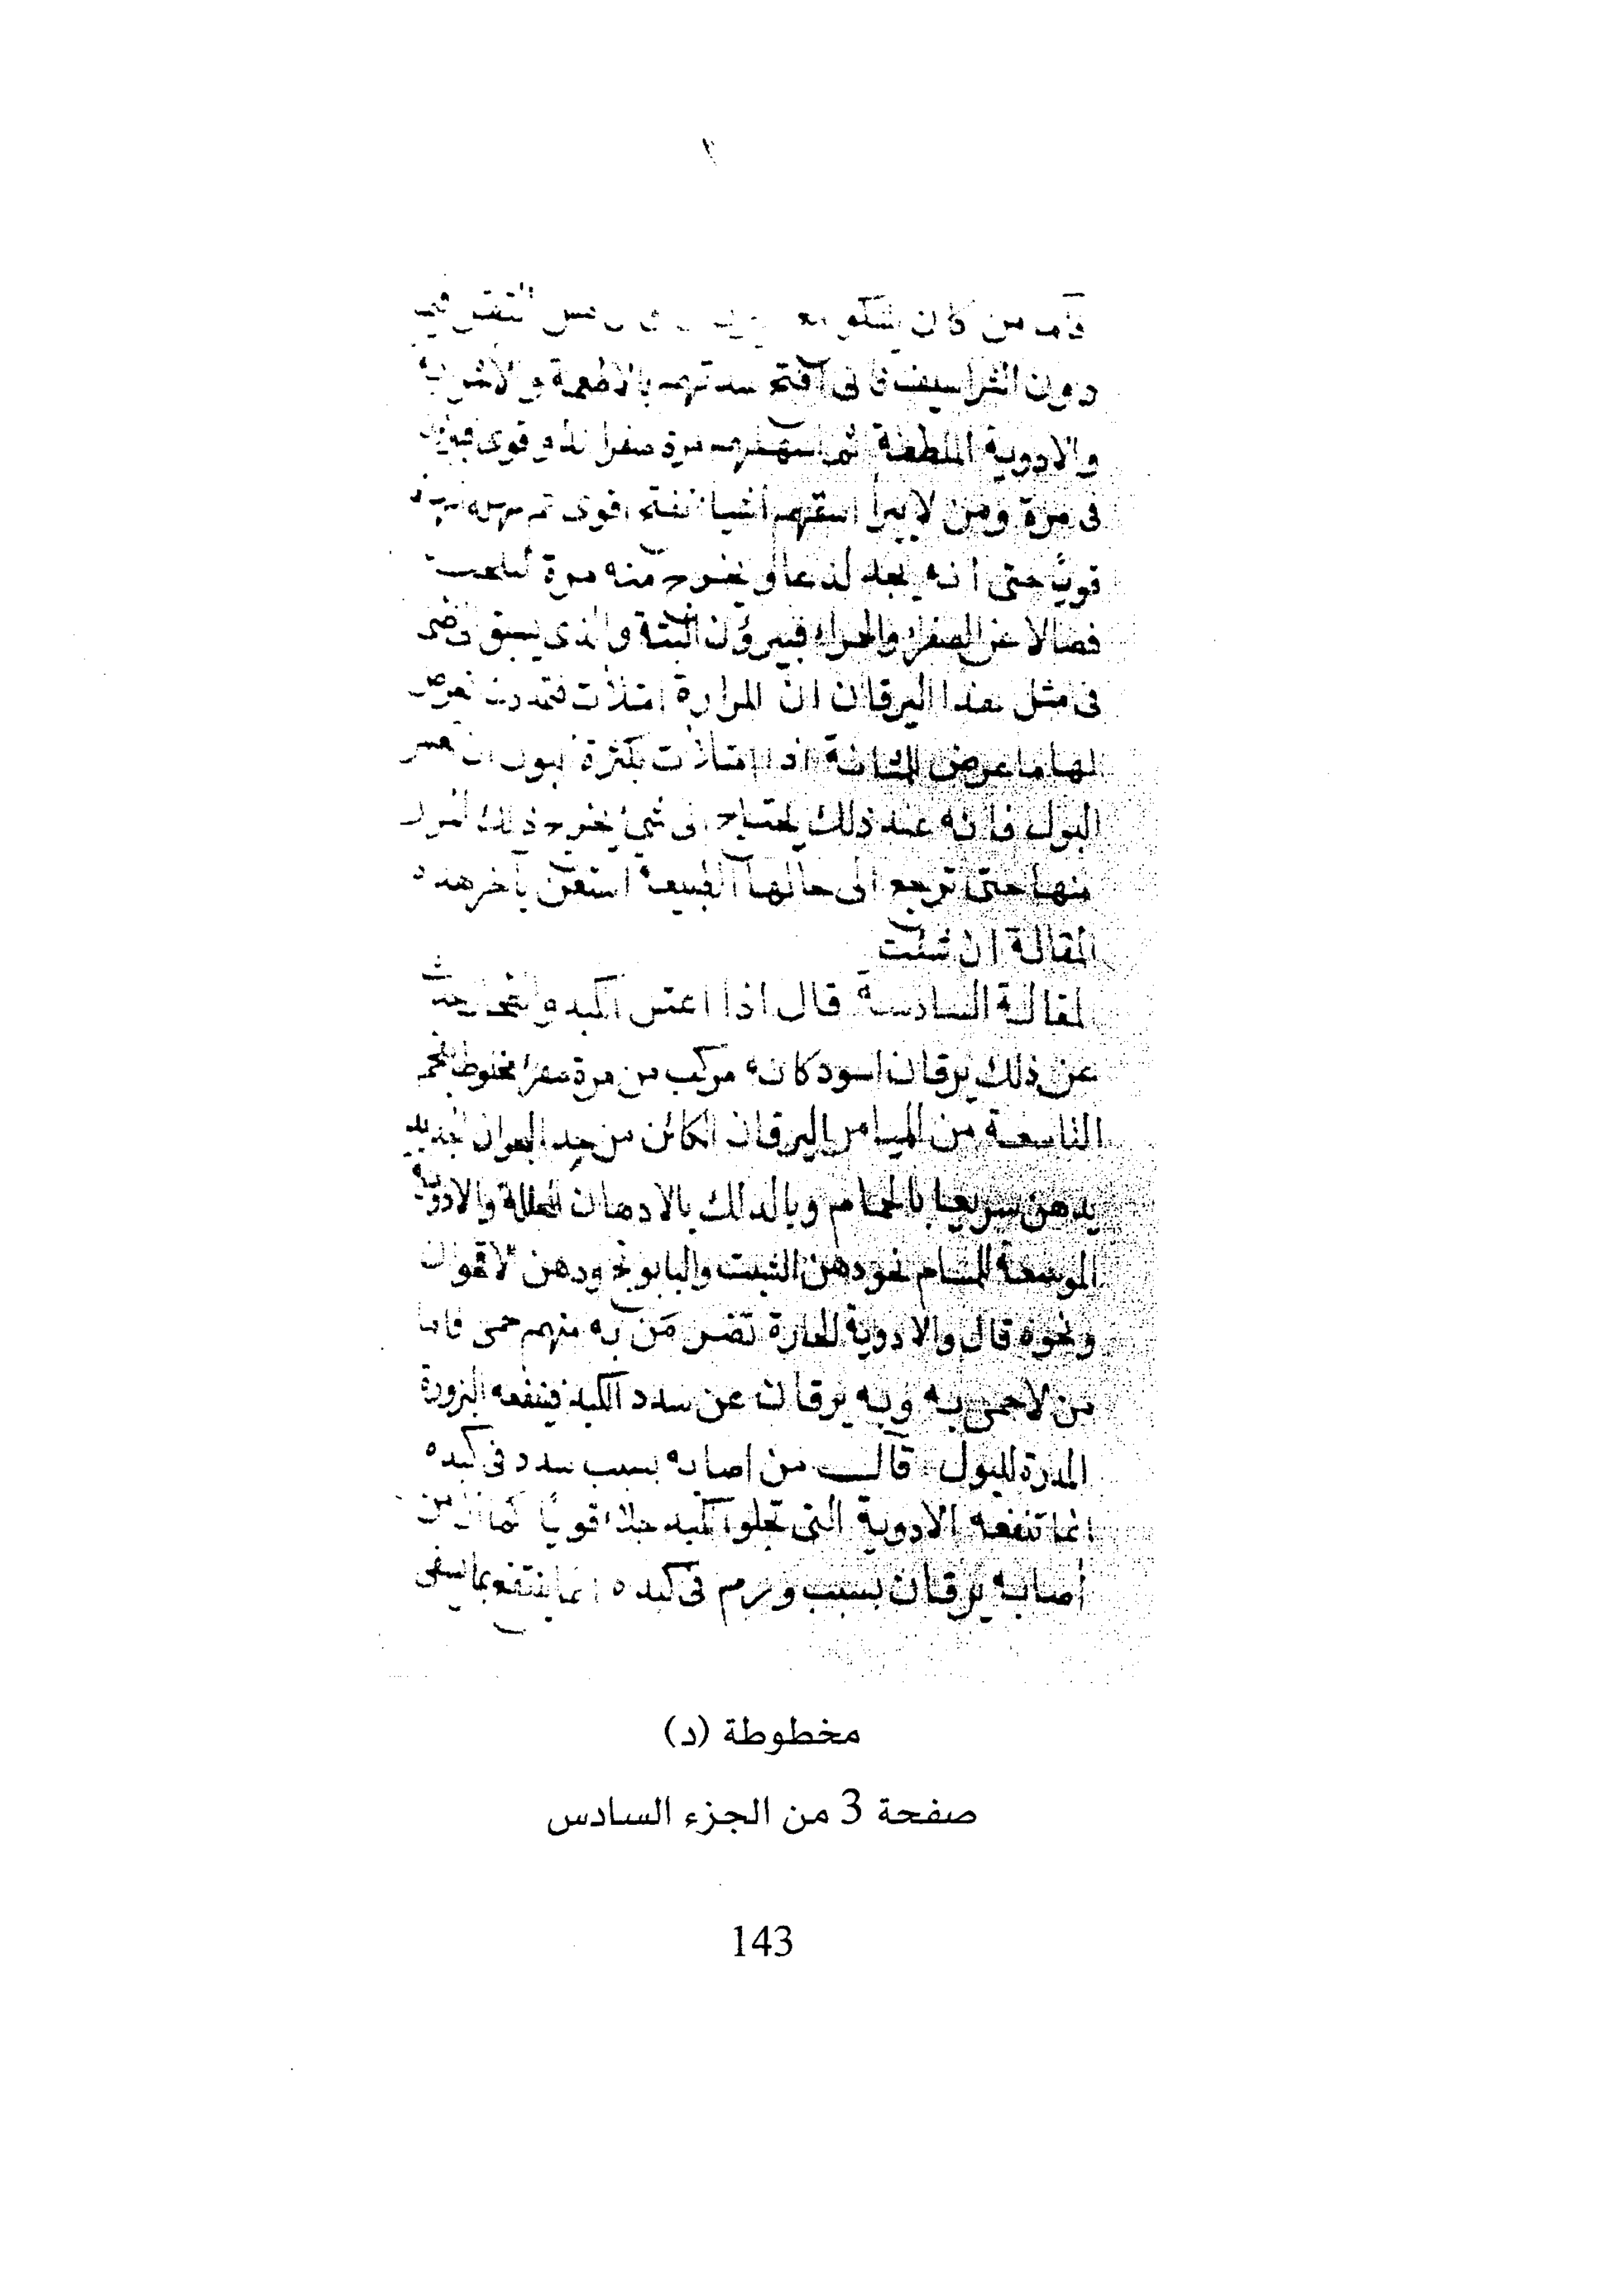 من كان يشكو مع
دون الشراسيف فانى افتح سددهم بالاطعمة والاشربة
والادوية الملطفة ثم اسهلهم مرة صفرا بدواء قوى
فى مرة ومن لا يبرأ اسقيهم اشيا تفتح اقوى ثم
قويا حتى انه يجد لذعا و يخرج منه مرة
فضلا عن الصفراء والحمراء فيبرؤن البتة والذى يسبق
فى مثل هذا اليرقان ان المرارة امتلأت فتمددت فعرض
لها ما عرض للمثانة اذا امتلأت بكثرة البول ان
البول فانه عند ذلك يحتاج الى شئ يخرج ذلك
منها حتى ترجع الى حالها الطبيعية استعن بآخر هذه
المقالة ان شئت
المقالة السادسة قال اذا اعتل الكبد والطحال حدث
عن ذلك يرقان اسود كانه مركب من مرة صفرا مخلوطة
التاسعة من الميامر اليرقان الكائن من جيد البحران
يذهب سريعا بالحمام وبالدلك بالادهان المحللة والادوية
الموسعة للمسام نحو دهن الشبت والبابونج ودهن الاقحوان
ونحوه قال والادوية الحارة تضر من به منهم حمى فاما
من لا حمى به وبه يرقان عن سدد الكبد فينفعه البزورة
المدرة للبول قال من اصابه بسبب سدد فى كبده
انما تنفعه الادوية التى تجلو الكبد جلاء قويا من
اصابه يرقان بسبب ورم فى كبده انما ينتفع بما
مخطوطة (د)
صفحة 3 من الجزء السادس
143